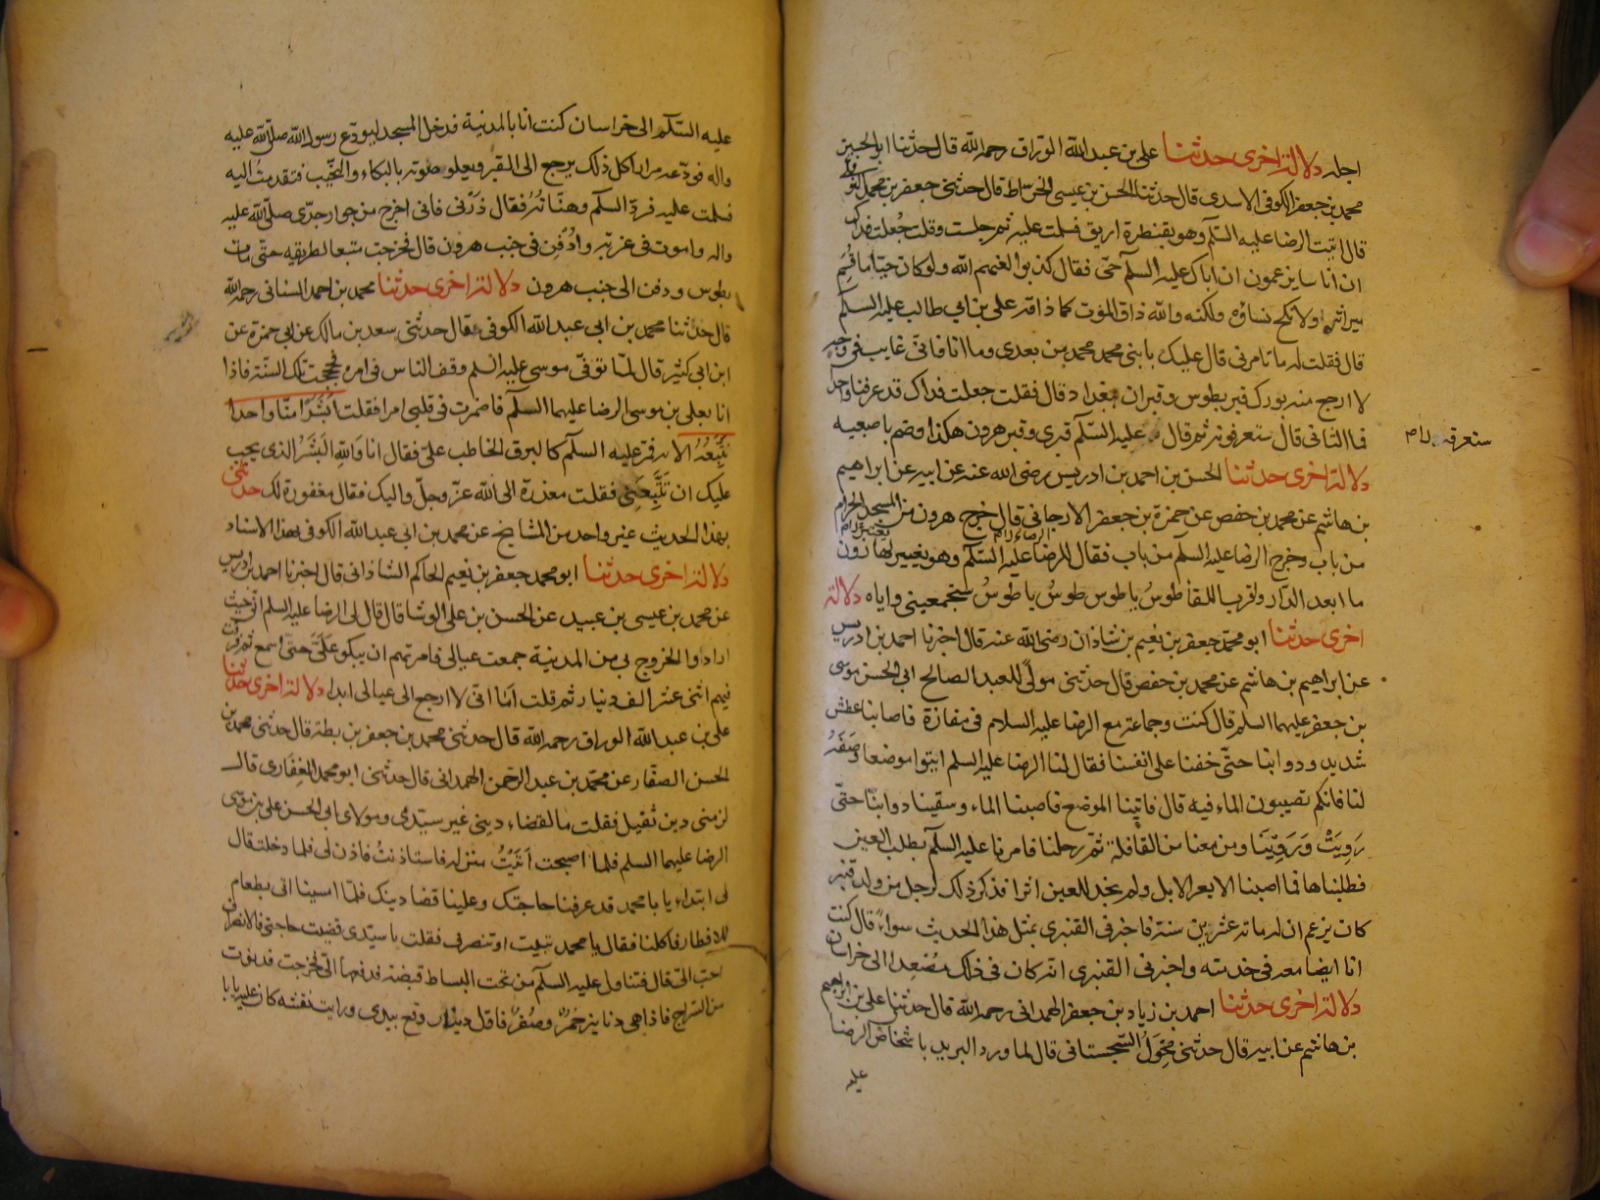 اجله دلالة اخرى حدثنا على بن عبد الله الوراق رحمه الله قال حدثنا ابو الحسين
محمد بن جعفر الكوفى الاسدى قال حدثنا الحسن بن عيسى الخراط قال حدثنى جعفر بن محمد النوفلى
قال اتيت الرضا عليه السلم وهو بقنطرة اربق فسلمت عليه ثم جلست وقلت جعلت فداك
ان اناسا يزعمون ان اباك عليه السلم حى فقال كذبوا لعنهم الله ولو كان حيا ما قسم
ميراثه ولا نكح نساؤه ولكنه والله ذاق الموت كما ذاقه على بن ابي طالب عليه السلم
قال فقلت له ما تامرنى قال عليك بابنى محمد من بعدى وما انا فانى غايب فى وجه
لا ارجع منه بورك قبر بطوس وقبران ببغداد قال فقلت جعلت فداك قد عرفنا واحدا
فما الثانى قال ستعرفونه ثم قال عليه السلم قبرى وقبر هرون هكذا وضم باصبعيه
ستعرفه
دلالة اخرى حدثنا الحسن بن احمد بن ادريس رضى الله عنه عن ابيه عن ابراهيم
بن هاشم عن محمد بن حفص عن حمزة بن جعفر الارجانى قال خرج هرون من المسجد الحرام
من باب وخرج الرضا عليه السلم من باب فقال للرضا عليه السلم وهو يعنى لهارون
ما ابعد الدار وقرب اللقا طوس يا طوس طوس يا طوس ستجمعينى واياه دلالة
اخرى حدثنا ابو محمد جعفر بن نعيم بن شاذان رضى الله عنه قال اخبرنا احمد بن ادريس
عن ابراهيم بن هاشم عن محمد بن حفص قال حدثنى مولى للعبد الصالح ابى الحسن موسى
بن جعفر عليهما السلم قال كنت وجماعة مع الرضا عليه السلام فى مفازة فاصابنا عطش
شديد ودوابنا حتى خفنا على انفسنا فقال لنا الرضا عليه السلم ايتوا موضعا وصفه
لنا فانكم تصيبون الماء فيه قال فاتينا الموضع فاصبنا الماء وسقينا دوابنا حتى
رويت وروينا ومن معنا من القافلة ثم رحلنا فامرنا عليه السلم بطلب العين
فطلبناها فما اصبنا الا بعر الابل ولم نجد للعين اثرا فذكر ذلك لرجل من ولد قنبر
كان يزعم ان له ماته عشرين سنة فاخبرنى القنبرى بمثل هذا الحديث سواء قال كنت
انا ايضا معه فى خدمته واخبرنى القنبرى انه كان فى ذلك مصعدا الى خراسان
دلالة اخرى حدثنا احمد بن زياد بن جعفر الهمدانى رحمه الله قال حدثنا على بن ابراهيم
بن هاشم عن ابيه قال حدثنى مخول السجستانى قال لما ورد البريد باشخاص الرضا
عليه
عليه السلم الى خراسان كنت انا بالمدينة فدخل المسجد ليودع رسول الله صلى الله عليه
واله فودعه مرارا كل ذلك يرجع الى القبر ويعلو صوته بالبكاء والنحيب فتقدمت اليه
فسلمت عليه فرد السلم وهناته فقال ذرنى فانى اخرج من جوار جدى صلى الله عليه
واله واموت فى غربة وادفن فى جنب هرون قال فخرجت متبعا لطريقه حتى مات
بطوس ودفن الى جنب هرون دلالة اخرى حدثنا محمد بن احمد السنانى رحمه الله
قال حدثنا محمد بن ابى عبد الله الكوفى قال حدثنى سعد بن مالك عن ابى حمزة عن
ابن ابى كثير قال لما توفى موسى عليه السلم وقف الناس فى امره فحججت تلك السنة فاذا
انا بعلى بن موسى الرضا عليهما السلم فاضمرت فى قلبى امرا فقلت ابشرا منا واحدا
نتبعه الاية فمر عليه السلم كالبرق الخاطب على فقال انا والله البشر الذى يجب
عليك ان تتبعنى فقلت معذرة الى الله عز وجل واليك فقال مغفورة لك حدثنى
بهذا الحديث غير واحد من المشايخ عن محمد بن ابى عبد الله الكوفى بهذا الاسناد
دلالة اخرى حدثنا ابو محمد جعفر بن نعيم الحاكم الشاذانى قال اخبرنا احمد بن ادريس
عن محمد بن عيسى بن عبيد عن الحسن بن على الوشا قال قال لى الرضا عليه السلم انى حيث
ارادوا الخروج بى من المدينة جمعت عيالى فامرتهم ان يبكوا على حتى اسمع ثم فرقت
فيهم اثنى عشر الف دينار ثم قلت اما انى لا ارجع الى عيالى ابدا دلالة اخرى حدثنا
على بن عبد الله الوراق رحمه الله قال حدثنى محمد بن جعفر بن بطة قال حدثنى محمد بن
الحسن الصفار عن محمد بن عبد الرحمن الهمدانى قال حدثنى ابو محمد الغفارى قال
لزمنى دين ثقيل فقلت ما لقضاء دينى غير سيدى ومولاى ابى الحسن على بن موسى
الرضا عليهما السلم فلما اصبحت اتيت منزله فاستاذنت فاذن لى فلما دخلت قال
لى ابتداء يا با محمد قد عرفنا حاجتك وعلينا قضا دينك فلما امسينا اتى بطعام
للافطار فاكلنا فقال يا محمد تبيت او تنصرف فقلت يا سيدى قضيت حاجتى فالانصراف
احب الى قال فتناول عليه السلم من تحت البساط قبضة فدفعها الى فخرجت فدنوت
من السراج فاذا هى دنانير حمر وصفر فاول دينار وقع بيدى ورايت نقشه كان عليه يابا